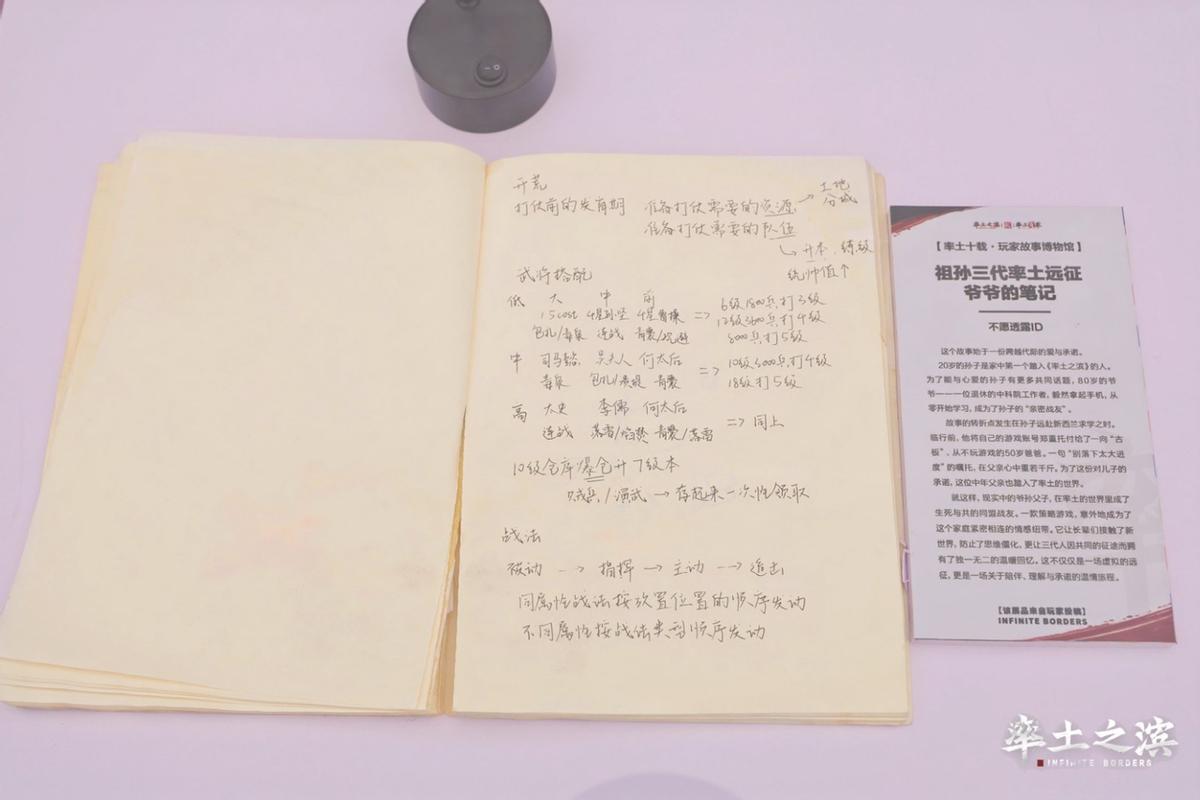 开荒
打仗前的发育期 准备打仗需要的资源 → 土地 分城
准备打仗需要的队伍
↳ 升本、练级
统帅值↑
武将搭配
低 大 中 前
1.5cost 4星孙坚 4星曹操 => 6级1800兵打3级
包扎/毒泉 连战 青囊/ 12级3600兵打4级
8000兵打5级
中 司马懿 吴夫人 何太后 => 10级3000兵打4级
毒泉 包扎/ 青囊 18级打5级
高 太史 李儒 何太后 => 同上
连战 落雷/焰焚 青囊/落雷
10级仓库爆仓升7级本
贼兵/演武 → 存起来一次性领取
战法
被动 → 指挥 → 主动 → 追击
同属性战法按放置位置的顺序发动
不同属性按战法类型顺序发动
率土之滨
【率土十载·玩家故事博物馆】
祖孙三代率土远征
爷爷的笔记
不愿透露ID
这个故事始于一份跨越代际的爱与承诺。
20岁的孙子是家中第一个踏入《率土之滨》的人。
为了能与心爱的孙子有更多共同话题，80岁的爷
爷——一位退休的中科院工作者，毅然拿起手机，从
零开始学习，成为了孙子的“亲密战友”。
故事的转折点发生在孙子远赴新西兰求学之时。
临行前，他将自己的游戏账号郑重托付给了一向“古
板”、从不玩游戏的50岁爸爸。一句“别落下太大进
度”的嘱托，在父亲心中重若千斤。为了这份对儿子的
承诺，这位中年父亲也踏入了率土的世界。
就这样，现实中的爷孙父子，在率土的世界里成了
生死与共的同盟战友。一款策略游戏，意外地成为了
这个家庭紧密相连的情感纽带。它让长辈们接触了新
世界，防止了思维僵化，更让三代人因共同的征途而拥
有了独一无二的温暖回忆。这不仅仅是一场虚拟的远
征，更是一场关于陪伴、理解与承诺的温情旅程。
【该展品来自玩家投稿】
INFINITE BORDERS
率土之滨
INFINITE BORDERS